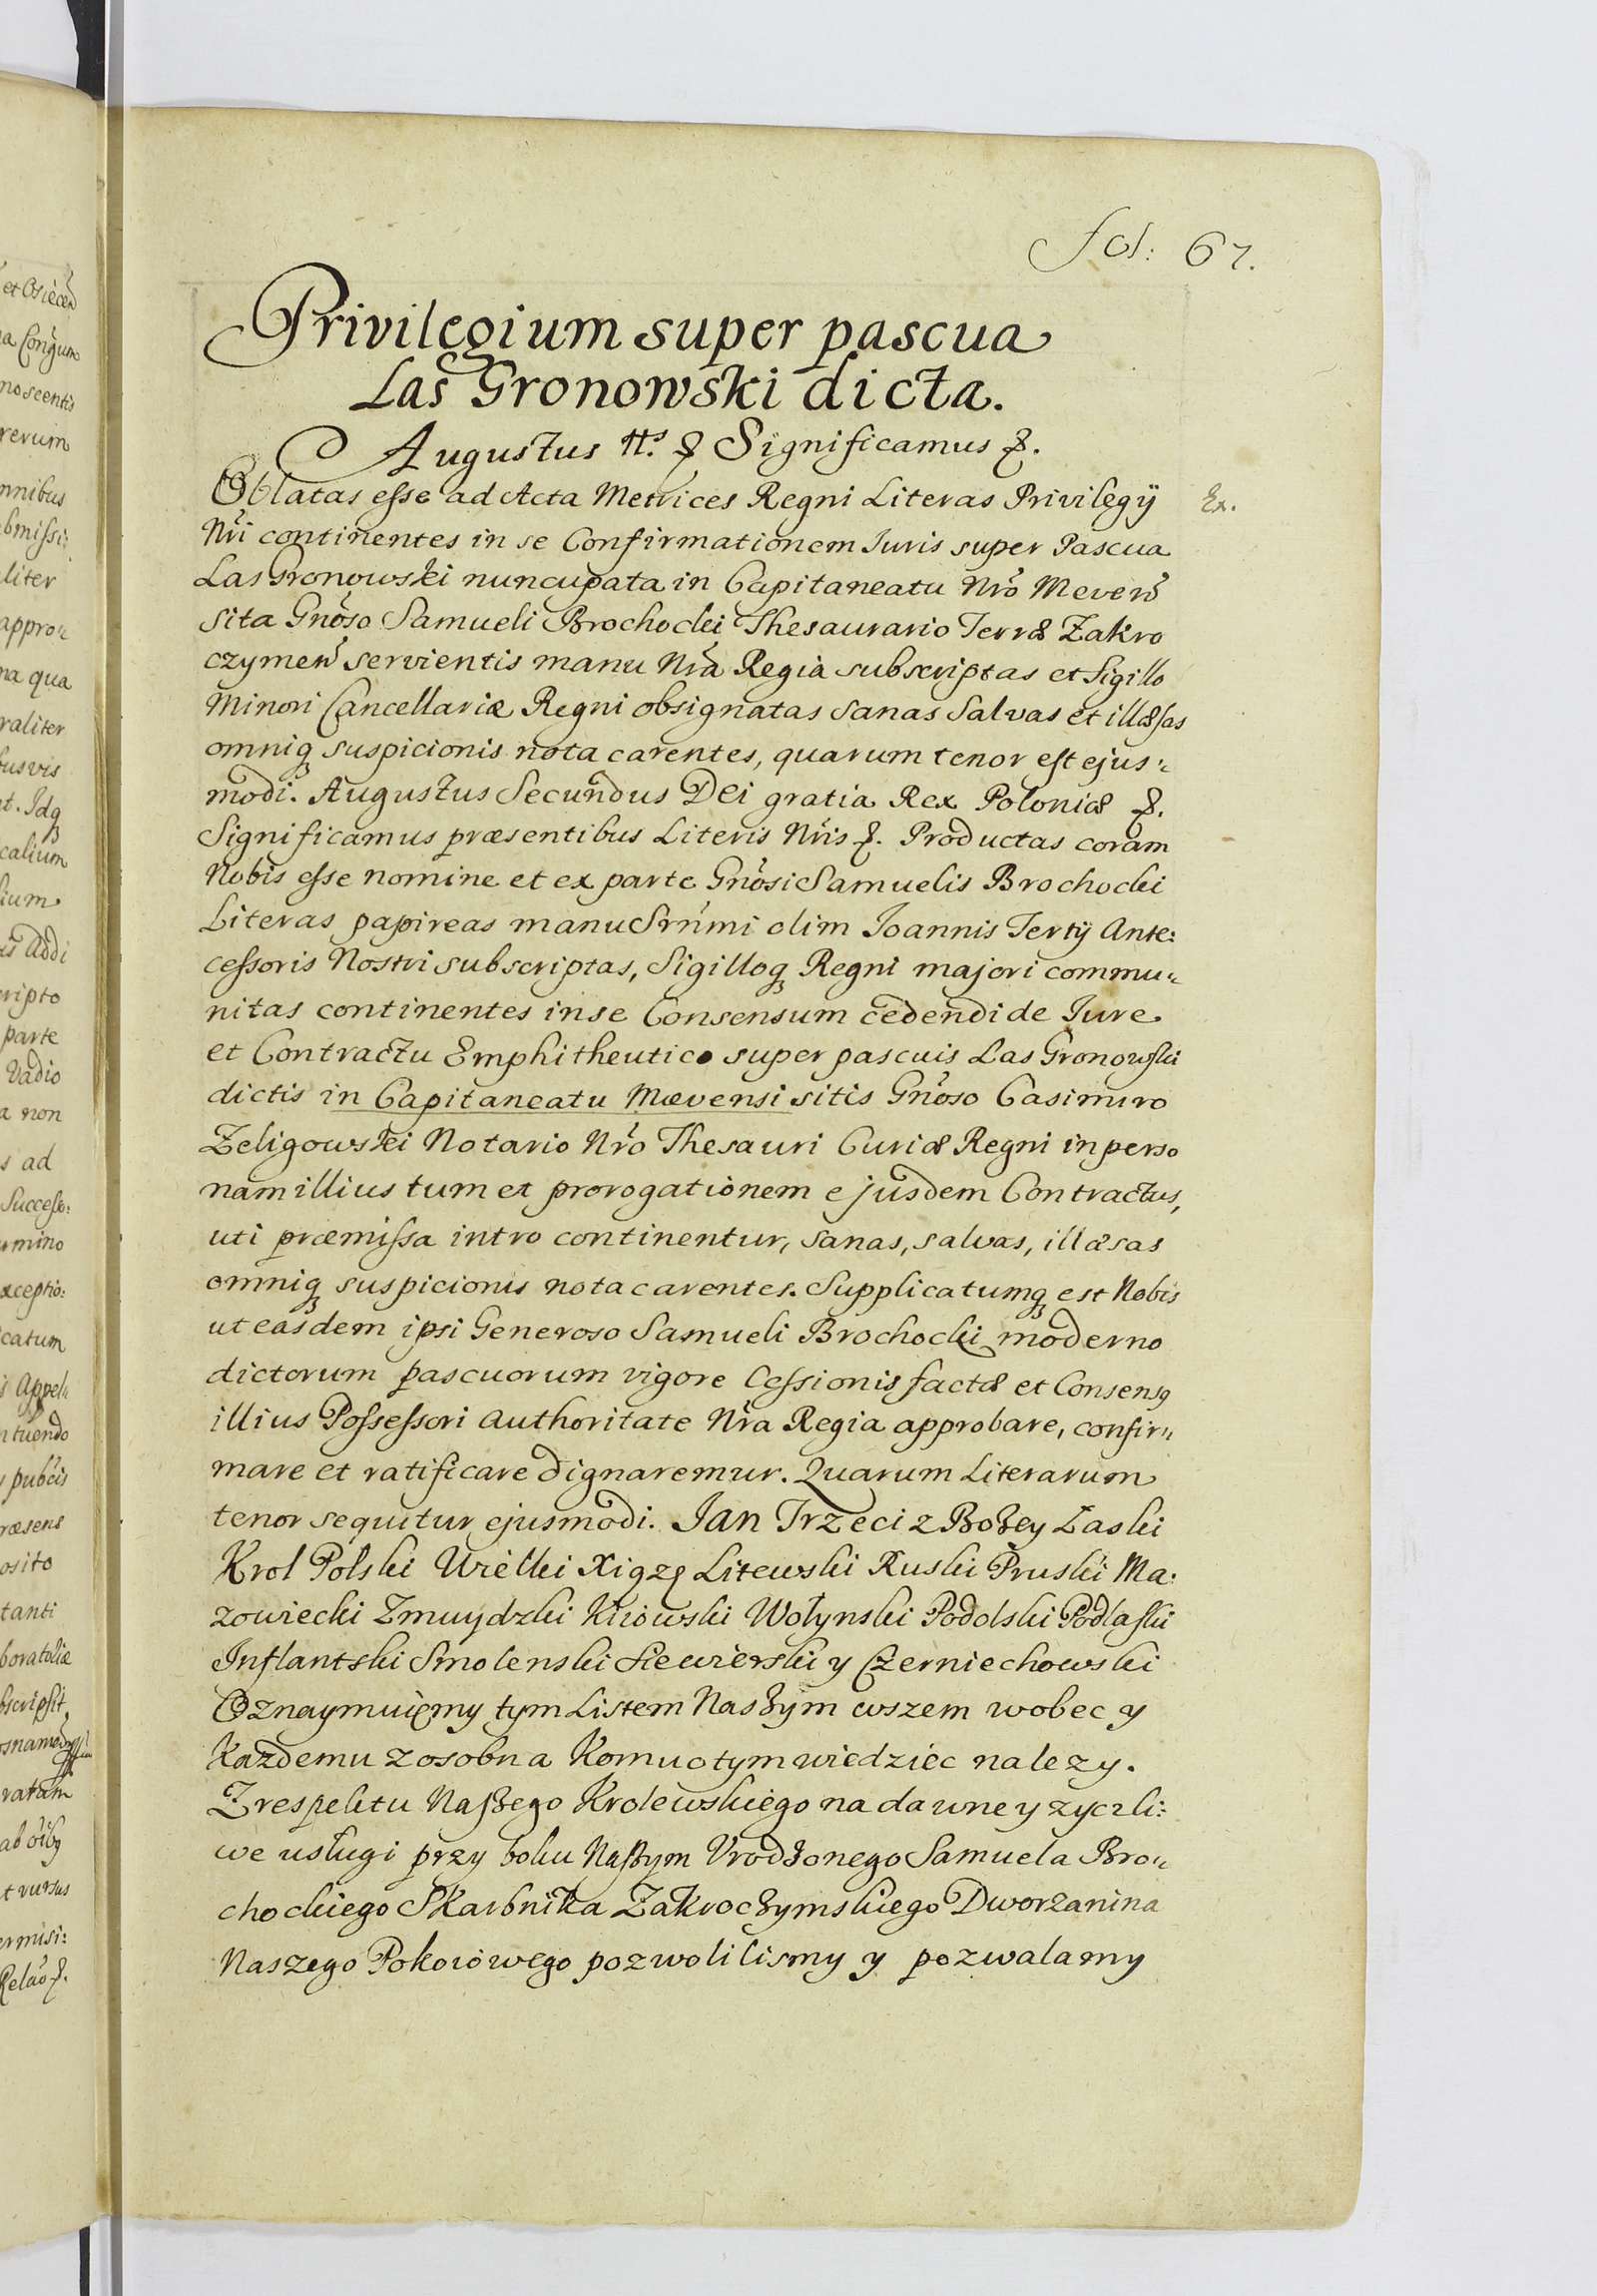 Fol: 67.
Privilegium super pascua
Las Gronowski dicta.
Augustus IIs. & Significamus &.
Oblatas esse ad Acta Metrices Regni Literas Privilegÿ
Ex.
Nri continentes in se Confirmationem Iuris super Pascua
Las Gronowski nuncupata in Capitaneatu Nro Meven
sita Gnoso Samueli Brochocki Thesaurario Terræ Zakro
czymen servientis manu Nra Regia subscriptas et Sigillo
Minori Cancellariæ Regni obsignatas Sanas Salvas et illæsas
omniq suspicionis nota carentes, quarum tenor est ejus:
modi. Augustus Secundus Dei gratia Rex Poloniæ &.
Significamus præsentibus Literis Nris &. Productas coram
Nobis esse nomine et ex parte Gnosi Samuelis Brochocki
Literas papireas manu Srnmi olim Joannis Tertÿ Ante:
cessoris Nostri subscriptas, Sigilloq Regni majori commu:
nitas continentes in se Consensum cedendi de Iure
et Contractu Emphitheutico super pascuis Las Gronowski
dictis in Capitaneatu Mævensi sitis Gnoso Casimiro
Zeligowski Notario Nro Thesauri Curiæ Regni in perso
nam illius tum et prorogationem ejusdem Contractus,
uti præmissa intro continentur, sanas, salvas, illæsas
omniq suspicionis nota carentes. Supplicatumq est Nobis
ut easdem ipsi Generoso Samueli Brochocki moderno
dictorum pascuorum vigore Cessionis factæ et Consensq
illius Possessori Authoritate Nra Regia approbare, confir:
mare et ratificare dignaremur. Quarum Literarum
tenor sequitur ejusmodi. Jan Trzeci z Bożey Łaski
Krol Polski Wielki Xiązę Litewski Ruski Pruski Ma:
zowiecki Zmuydzki Kiiowski Wołynski Podolski Podlaski
Inflantski Smolenski Siewierski y Czerniechowski
Oznaymuięmy tym Listem Naszym wszem wobec y
Kazdemu z osobna Komu o tym wiedziec nalezy.
Z respektu Naszego Krolewskiego na dawne y zyczli:
we usługi przy boku Naszym Vrodzonego Samuela Bro:
chockiego Skarbnika Zakroczymskiego Dworzanina
Naszego Pokoiowego pozwolilismy y pozwalamy